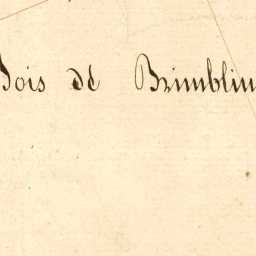 Bois de Brimblin